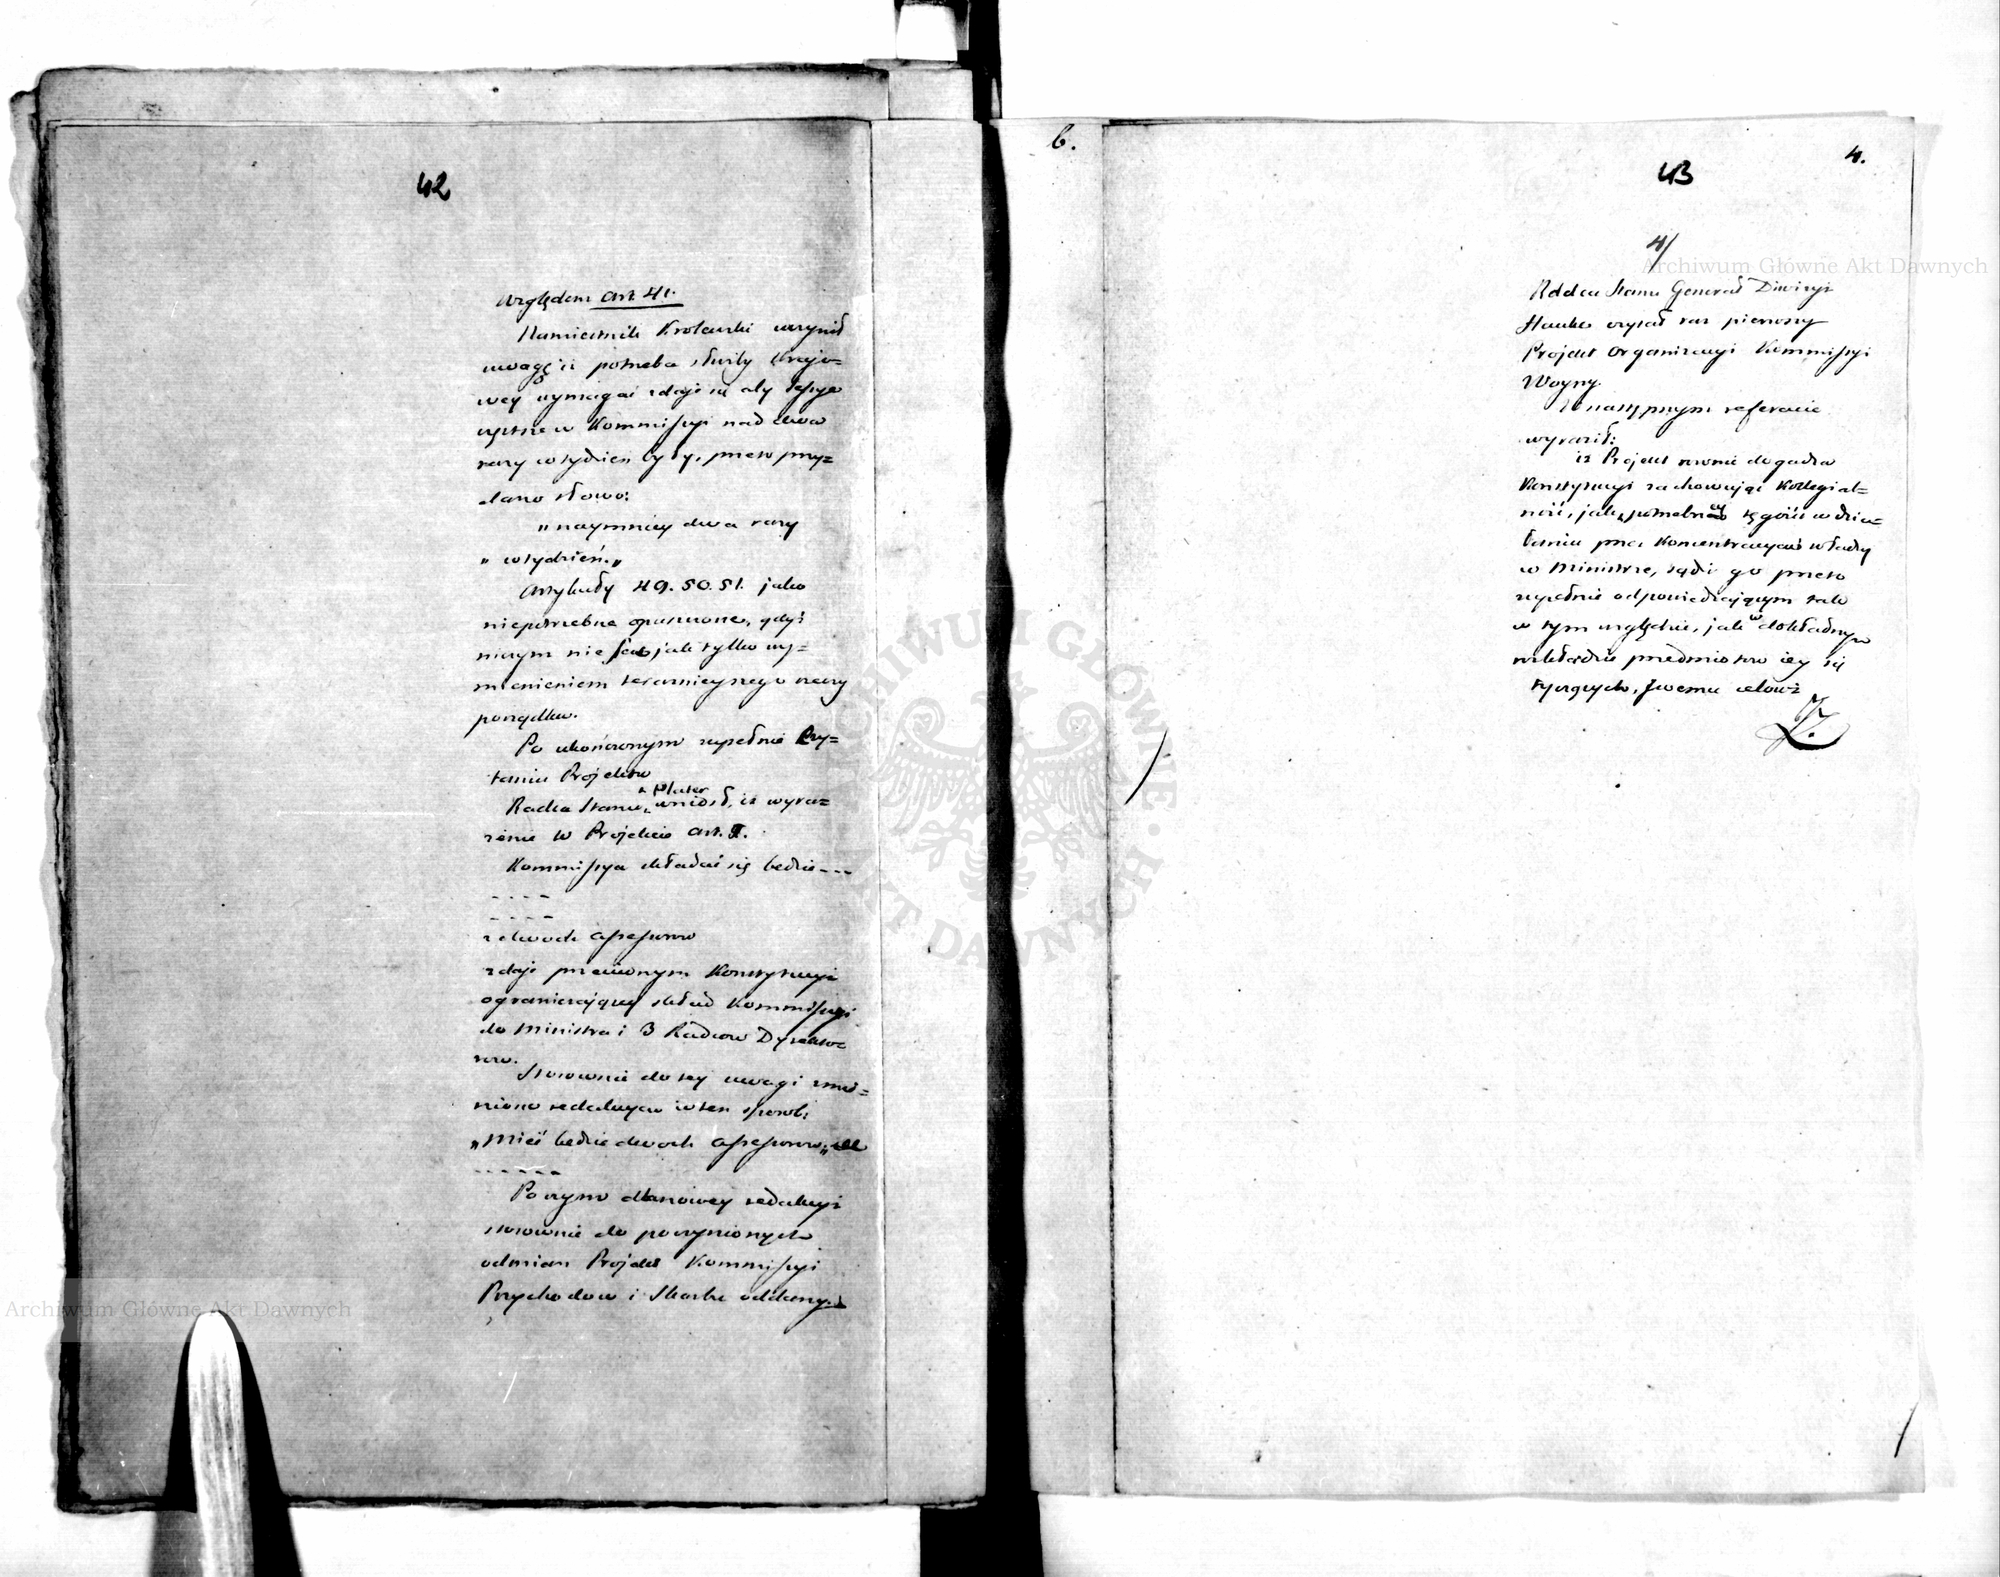 42
względem art. 41.
Namiestnik Krolewski uczynił
uwagę iż potrzeba służby Krajo=
wey wymagać zdaje się aby Sessye
częstsze w Kommissyi nad dwa
razy w tydzien były, przeto przy=
dano słowo:
„ naymniey dwa razy
„ w tydzień. „
Artykuły 49. 50. 51. jako
niepotrzebne opuszczone, gdyż
niczym nie są jak tylko wy=
mienieniem teraznieyszego rzeczy
porządku.
Po ukończonym zupełnie Czy=
taniu Projektu
Radca Stanu Plater wniosł, iż wyra=
żenie w Projekcie art.
Kommissya składać się będzie - - -
- - - -
- - - -
z dwoch assessorow
zdaje przeciwnym Konstytucyi
ograniczającey skład Kommissyi
do Ministra i 3 Radcow Dyrekto=
row.
Stosownie do tey uwagi zmie=
niono redakcyą w ten sposob:
„ Mieć będzie dwoch assessorow „
- - - - - -
Po czym dla nowey redakcyi
stosownie do poczynionych
odmian Projekt Kommissyi
Przychodow i Skarbu oddany.
b.
43
4.
4/
Radca Stanu Generał Diwizyi
Hauke czytał raz pierwszy
Projekt Organizacyi Kommissyi
Woyny.
W następnym referacie
wyraził:
iż Projekt rownie dogadza
Konstytucyi zachowując Kollegial=
ność, jak potrzebney tęgości w dzia=
łaniu przez Koncentracyą władzy
w Ministrze, sądzi go przeto
zupełnie odpowiedzającym tak
w tym względzie, jak w dokładnym
rozkładzie przedmiotow iey się
tyczących, swemu celowi
Archiwum Główne Akt Dawnych
Archiwum Główne Akt Dawnych
ARCHIWUM GŁÓWNE · AKT DAWNYCH ·